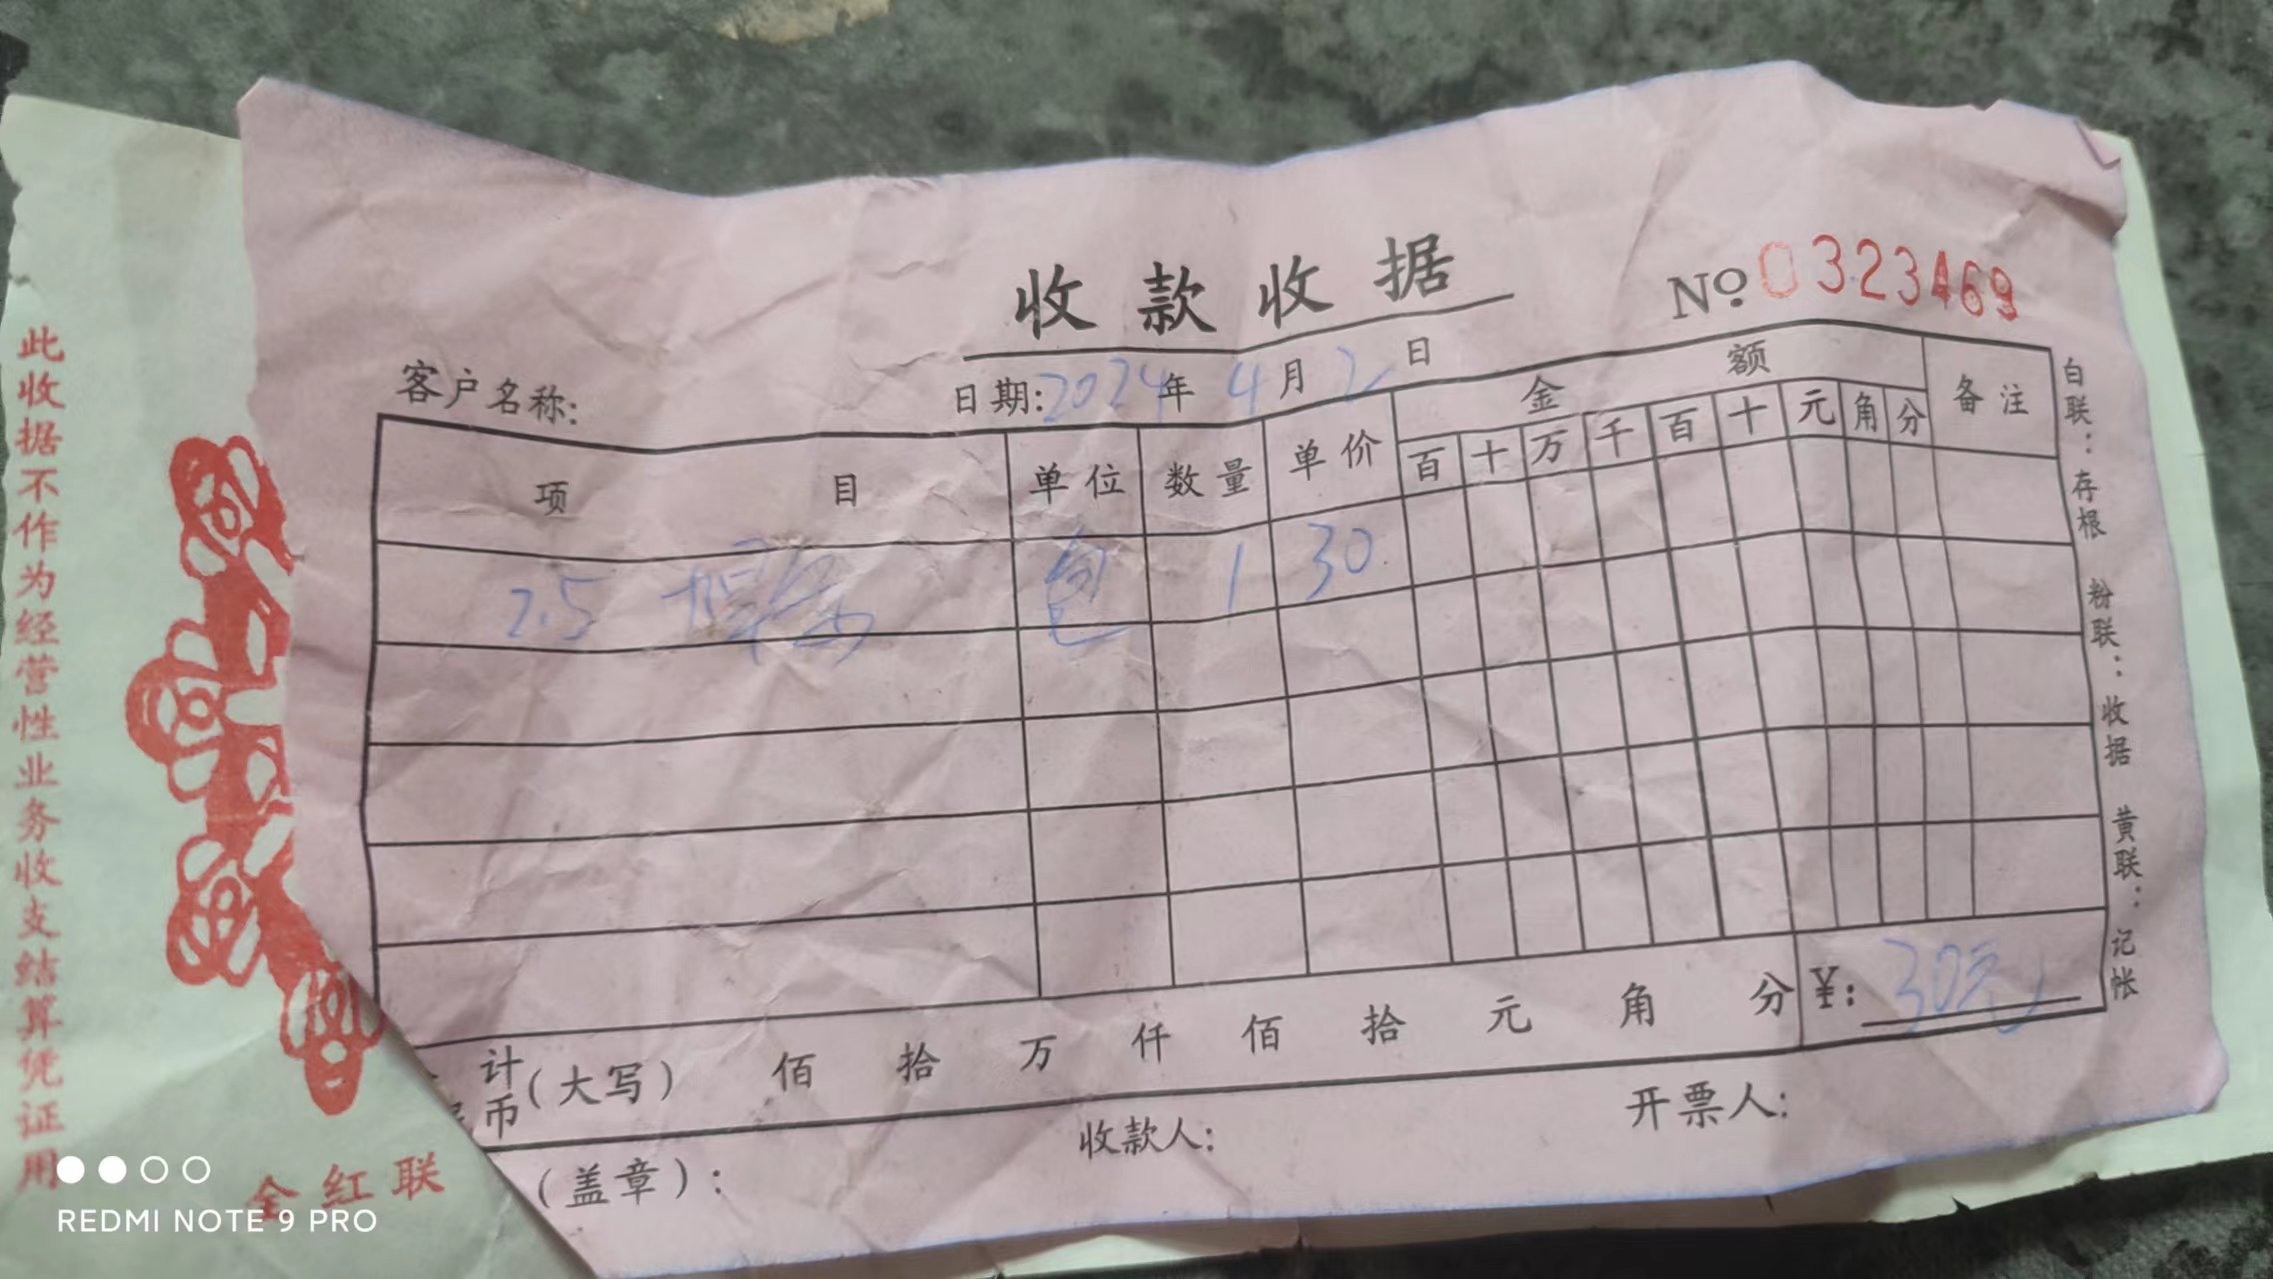 收款收据
No 0323469
客户名称:
日期:2024年4月2日
项目 单位 数量 单价 金额 备注
百十万千百十元角分
2.5 焊条 包 1 30
计(大写) 佰 拾 万 仟 佰 拾 元 角 分 ¥:30元
币
(盖章): 收款人: 开票人:
白联:存根 粉联:收据 黄联:记帐
此收据不作为经营性业务收支结算凭证用
全红联
REDMI NOTE 9 PRO